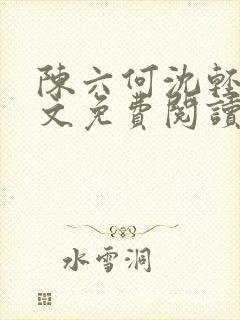 陳六何沈輕
文免費閱讀
水雪洞